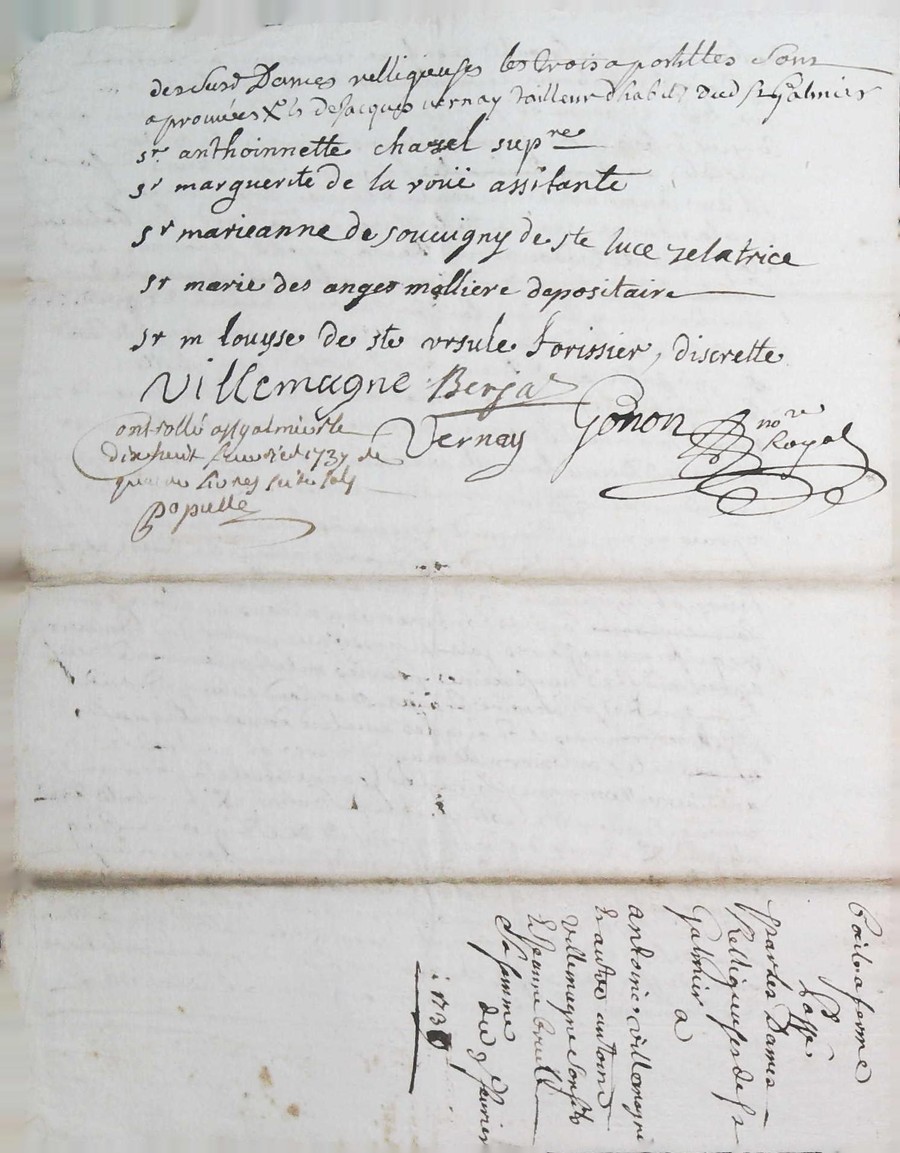 des susd Dames relligieuses les trois apostilles sont
aprouvées & ls de Jacques vernay Tailleur d'habits dud St Galmier
sr anthoinnette chazel supre
sr marguerite de la roüe assitante
sr marieanne de souvigny de ste luce zelatrice
sr marie des anges molliere depositaire
sr m louyse de ste ursule forissier, discrette
villemagne Berja
Vernay Gonon nore Royal
ontrollé a St galmier le
dix huit feuvrier 1737
livres seize sols
Populle
Bail a ferme
passé
par les Dames
Relligieuses de St
Galmier a
antoine villemagne
& autre antoine
villemagne son fils
& Jeanne
sa femme
du 9 feuvrier
1736